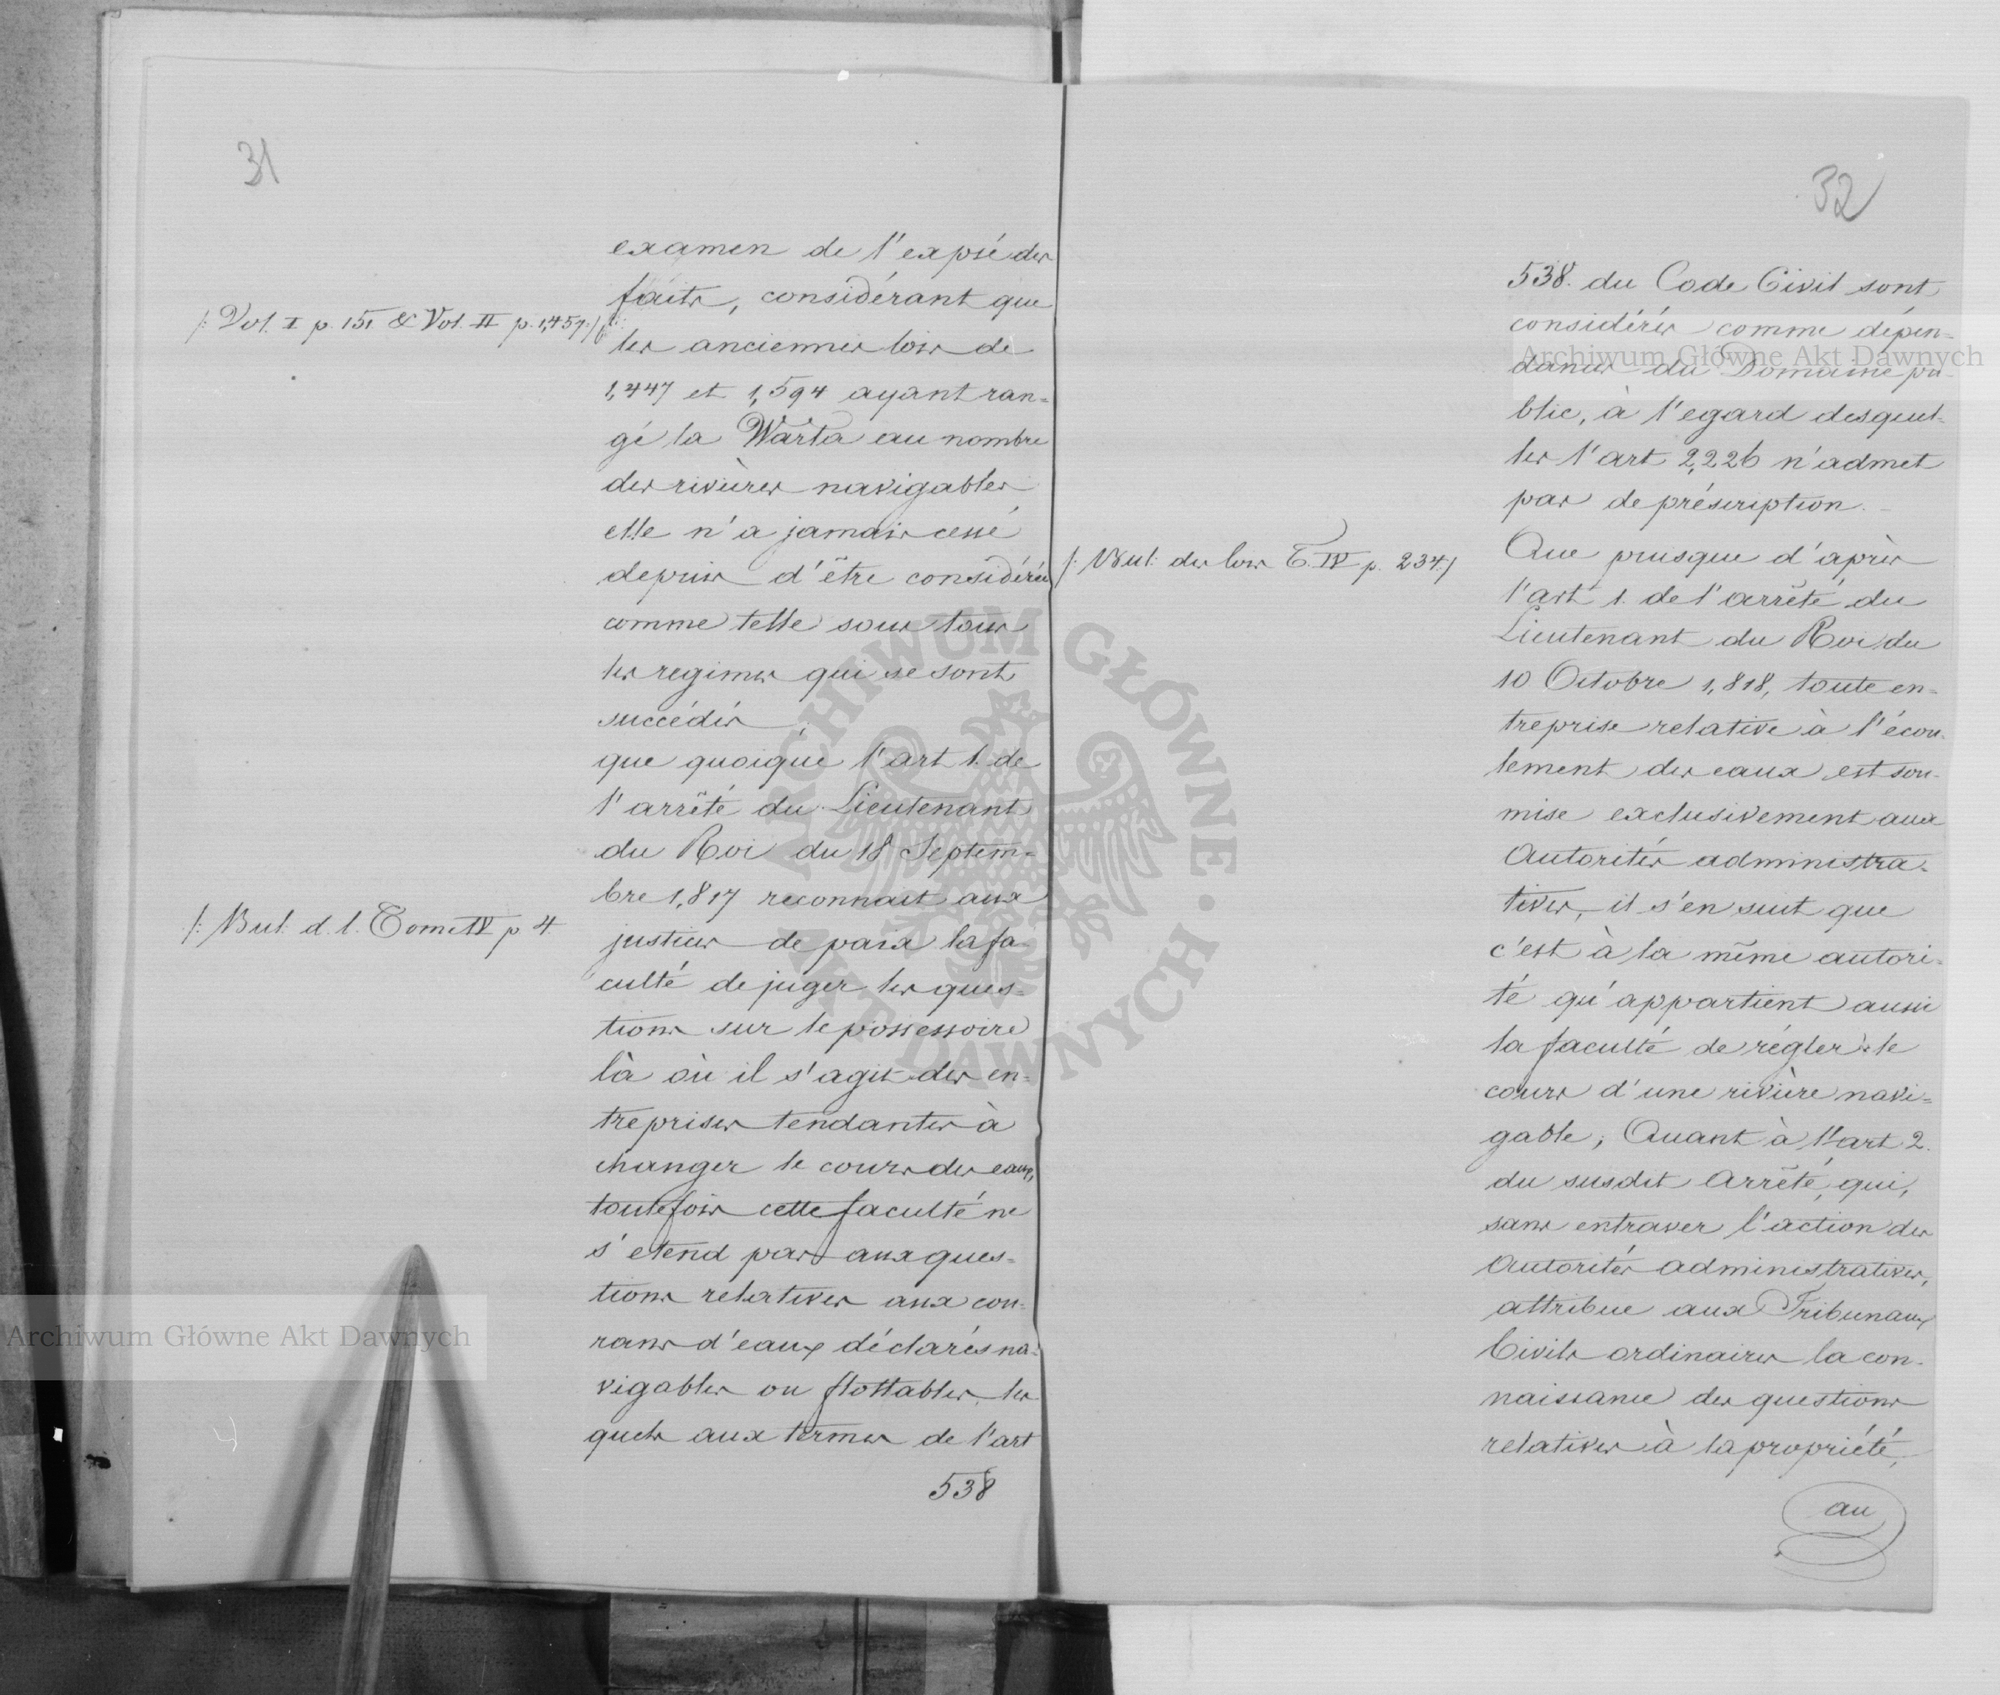 31
examen de l'expsé des
faits, considérant que
/: Vol. I p. 151 & Vol. II p. 1,457 :/
les anciennes lois de
1,447 et 1,594 ayant ran=
gé la Warta au nombre
des rivières navigables
elle n'a jamais cessé
depuis d'être considérée
comme telle sous tous
les regimes qui se sont
succédés
que quoique l'art 1. de
l'arrêté du Lieutenant
du Roi du 18 Septem=
bre 1,817 reconnait aux
/: Bul. d. l. Tome IV p 4.
justices de paix la fa-
culté de juger les ques=
tions sur le possessoire
là où il s'agit des en=
treprises tendantes à
changer le cours des eaux,
toutefois cette faculté ne
s'etend pas aux ques=
tions relatives aux cou=
rans d'eaux déclarés na=
vigables ou flottables, les
quels aux termes de l'art
538
32
538. du Code Civil sont
considérés comme dépen=
dances du Domaine pu-
blic, à l'egard desquel-
les l'art 2,226 n'admet
pas de préscription.
Que puisque d'après
/: Bul: des lois T. IV p. 234/
l'art 1. de l'arrêté du
Lieutenant du Roi du
10 Octobre 1,818, toute en=
treprise relative à l'écou-
lement des eaux est sou-
mise exclusivement aux
Autorités administra-
tives, il s'en suit que
c'est à la même autori=
té qu'appartient aussi
la faculté de régler le
cours d'une rivière navi=
gable; Quant à l'art 2.
du susdit Arrêté, qui,
sans entraver l'action des
Autorités administratives,
attribue aux Tribunaux
Civils ordinaires la con-
naissance des questions
relatives à la propriété,
au
Archiwum Główne Akt Dawnych
Archiwum Główne Akt Dawnych
ARCHIWUM GŁÓWNE · AKT DAWNYCH ·